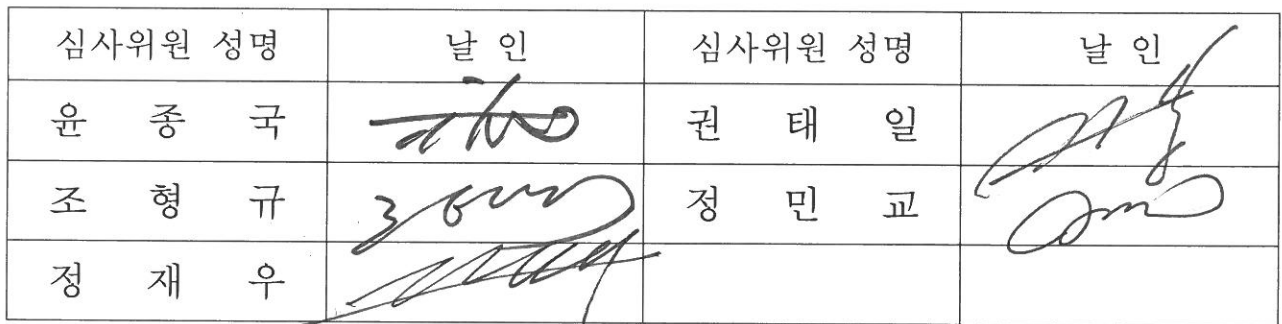 심사위원 성명 날 인 심사위원 성명 날 인
윤 종 국 권 태 일
조 형 규 정 민 교
정 재 우